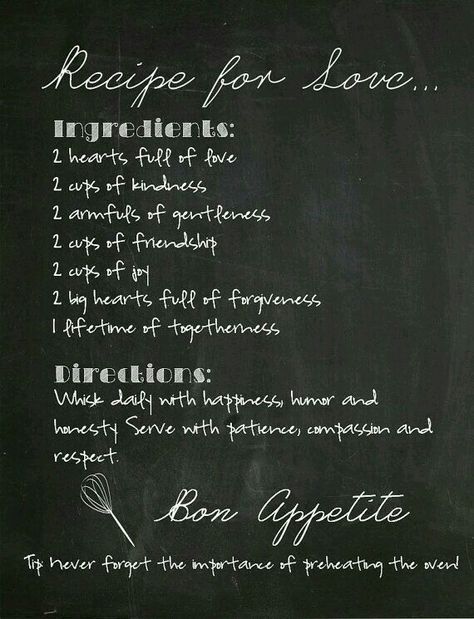 Recipe for Love...
Ingredients:
2 hearts full of love
2 cups of kindness
2 armfuls of gentleness
2 cups of friendship
2 cups of joy
2 big hearts full of forgiveness
1 lifetime of togetherness
Directions:
Whisk daily with happiness, humor and
honesty Serve with patience, compassion and
respect.
Bon Appetite
Tip Never forget the importance of preheating the oven!